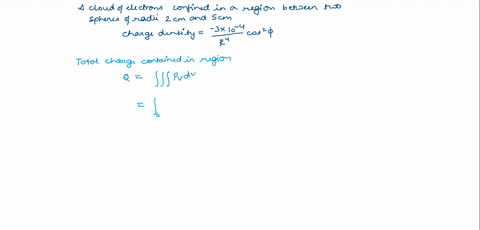 A cloud of electrons confined in a region between two
spheres of radii 2cm and 5cm
charge density = -3×10⁻⁴/R⁴ cos²φ
Total charge contained in region
Q = ∭ ρv dv
= ∫₀